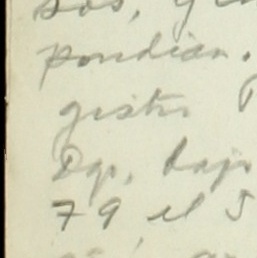 sos, y
pondian.
gistro
Dgo. bajo
79 el 5